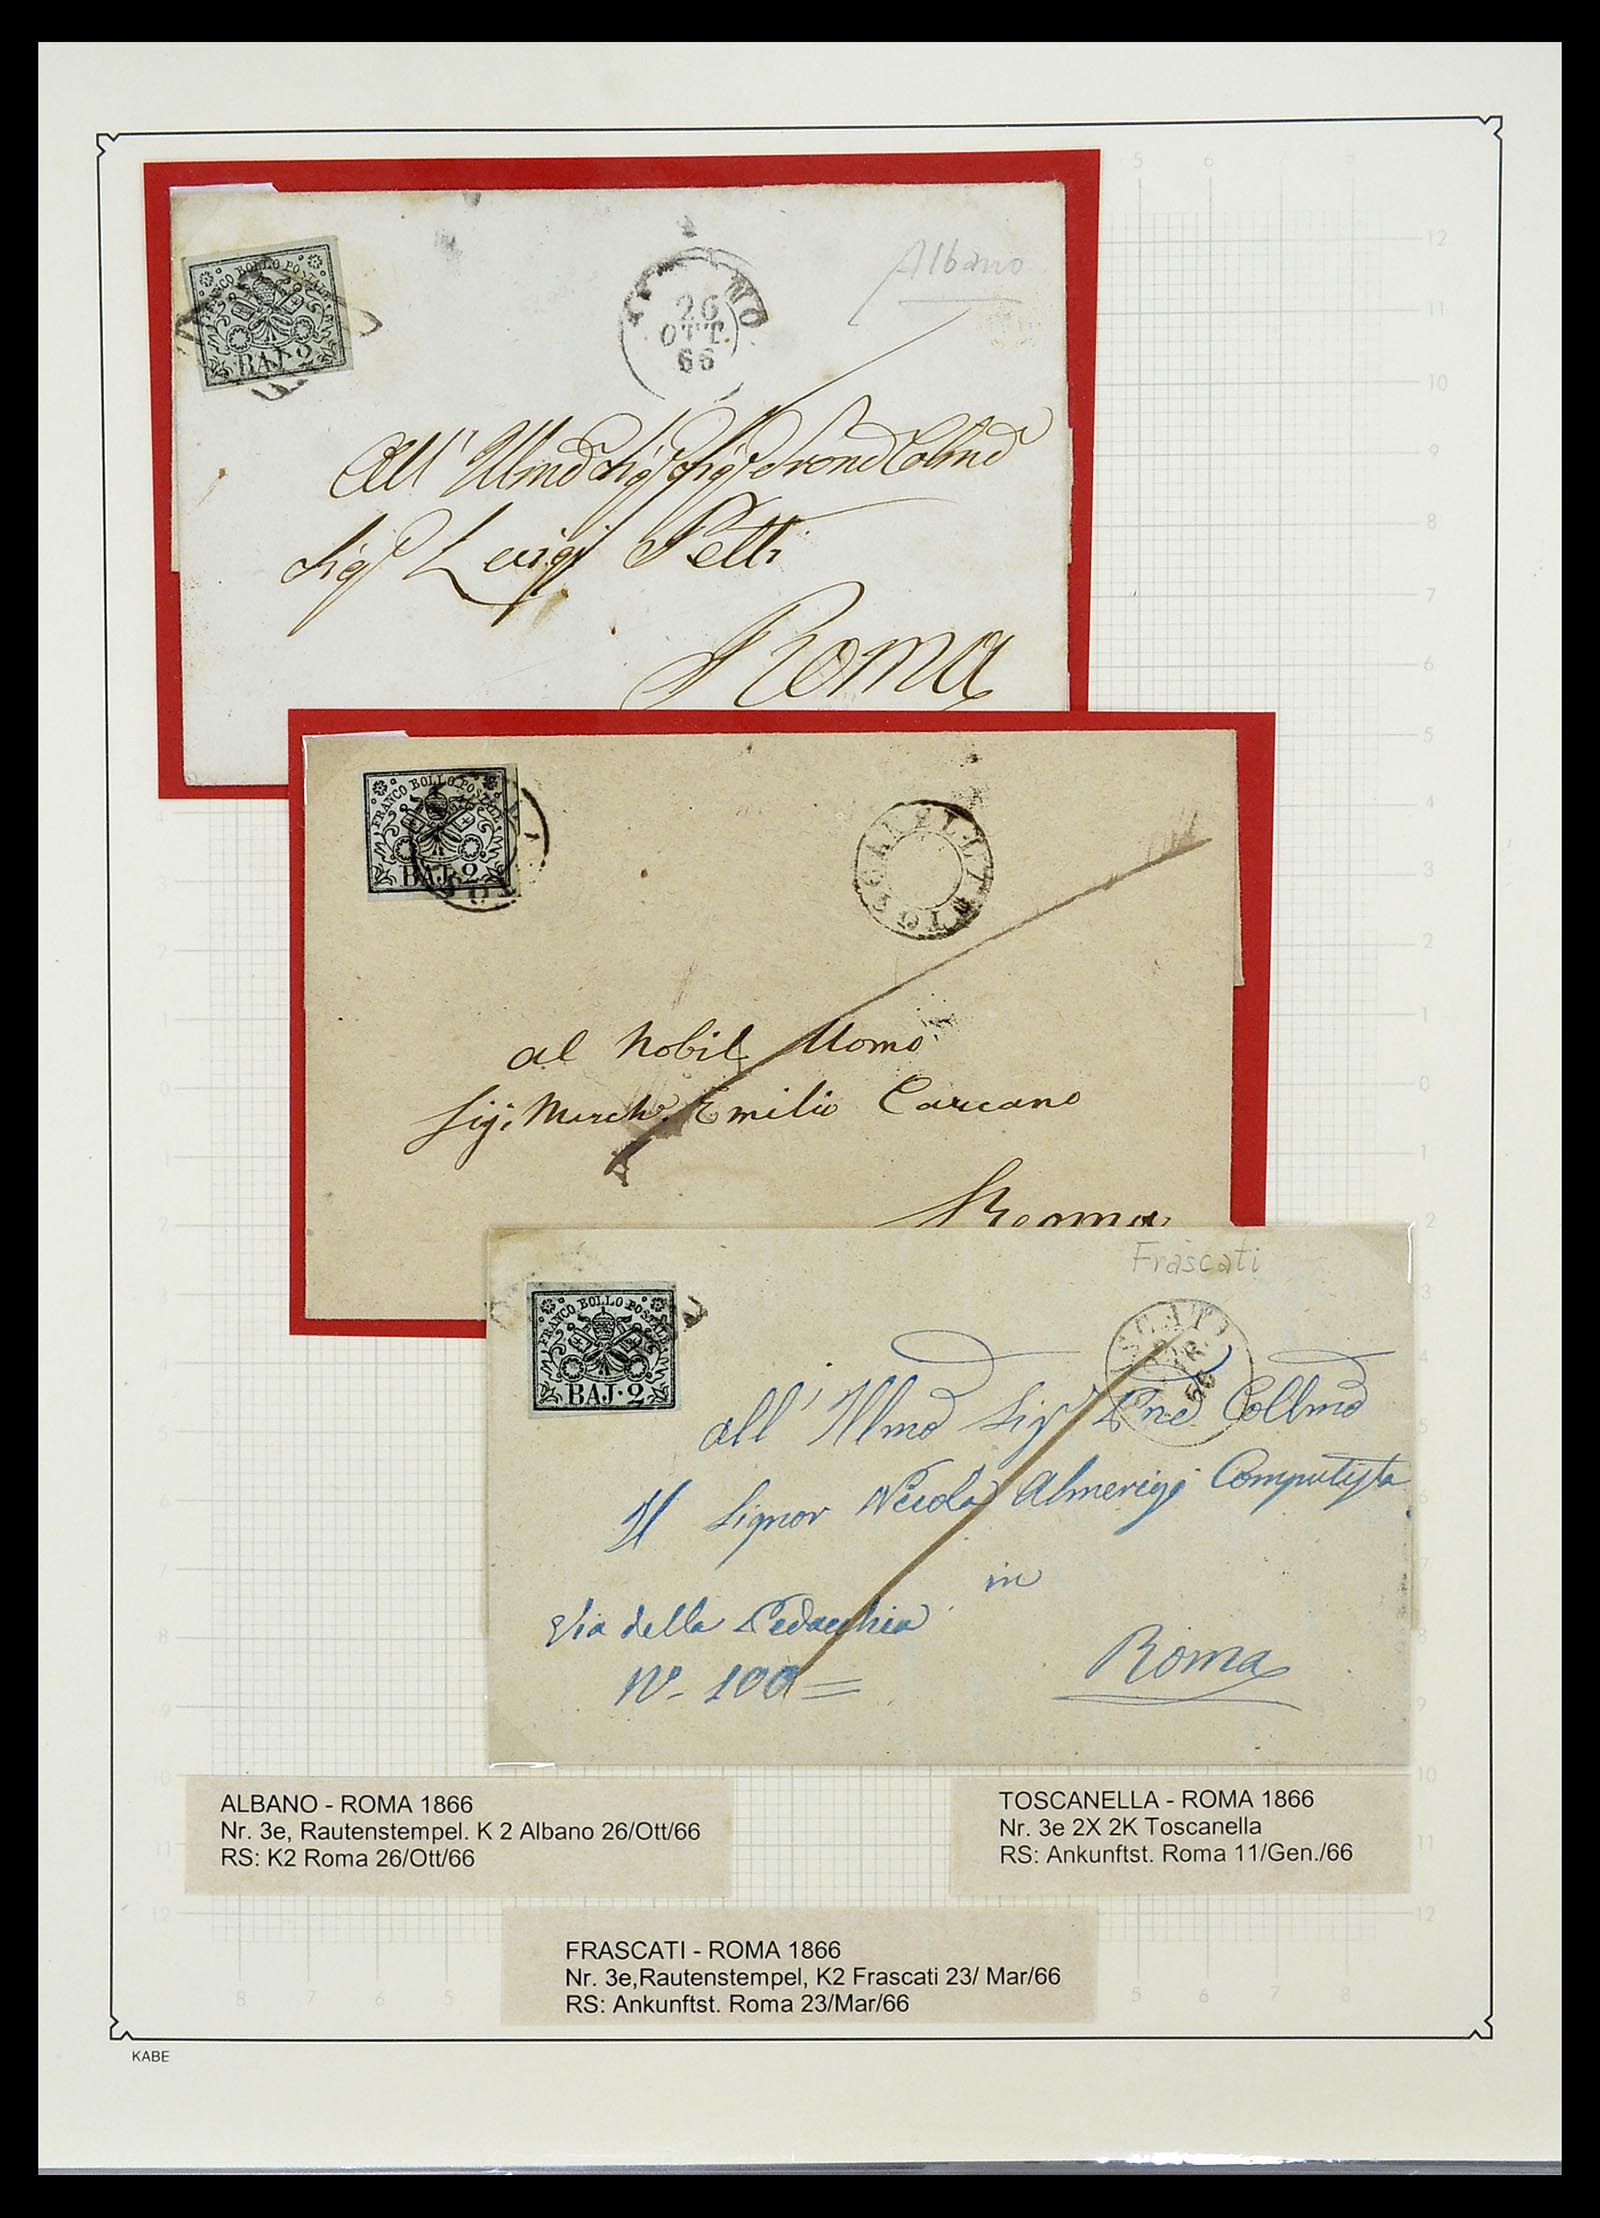 Albano
FRANCO BOLLO POSTALE
BAJ. 2
26
OTT
66
All' Illmo Sigr Sigr Prone Colmo
Sigr Luigi Petti
Roma
FRANCO BOLLO POSTALE
BAJ. 2
al Nobil Uomo
Sig: March: Emilio Carcano
Roma
Frascati
FRANCO BOLLO POSTALE
BAJ. 2
all' Illmo Sigr Pne Collmo
Il Signor Nicola Almerigi Computista
in
Via della Pedacchia
No. 100 =
Roma
ALBANO - ROMA 1866
Nr. 3e, Rautenstempel. K 2 Albano 26/Ott/66
RS: K2 Roma 26/Ott/66
TOSCANELLA - ROMA 1866
Nr. 3e 2X 2K Toscanella
RS: Ankunftst. Roma 11/Gen./66
FRASCATI - ROMA 1866
Nr. 3e,Rautenstempel, K2 Frascati 23/ Mar/66
RS: Ankunftst. Roma 23/Mar/66
KABE